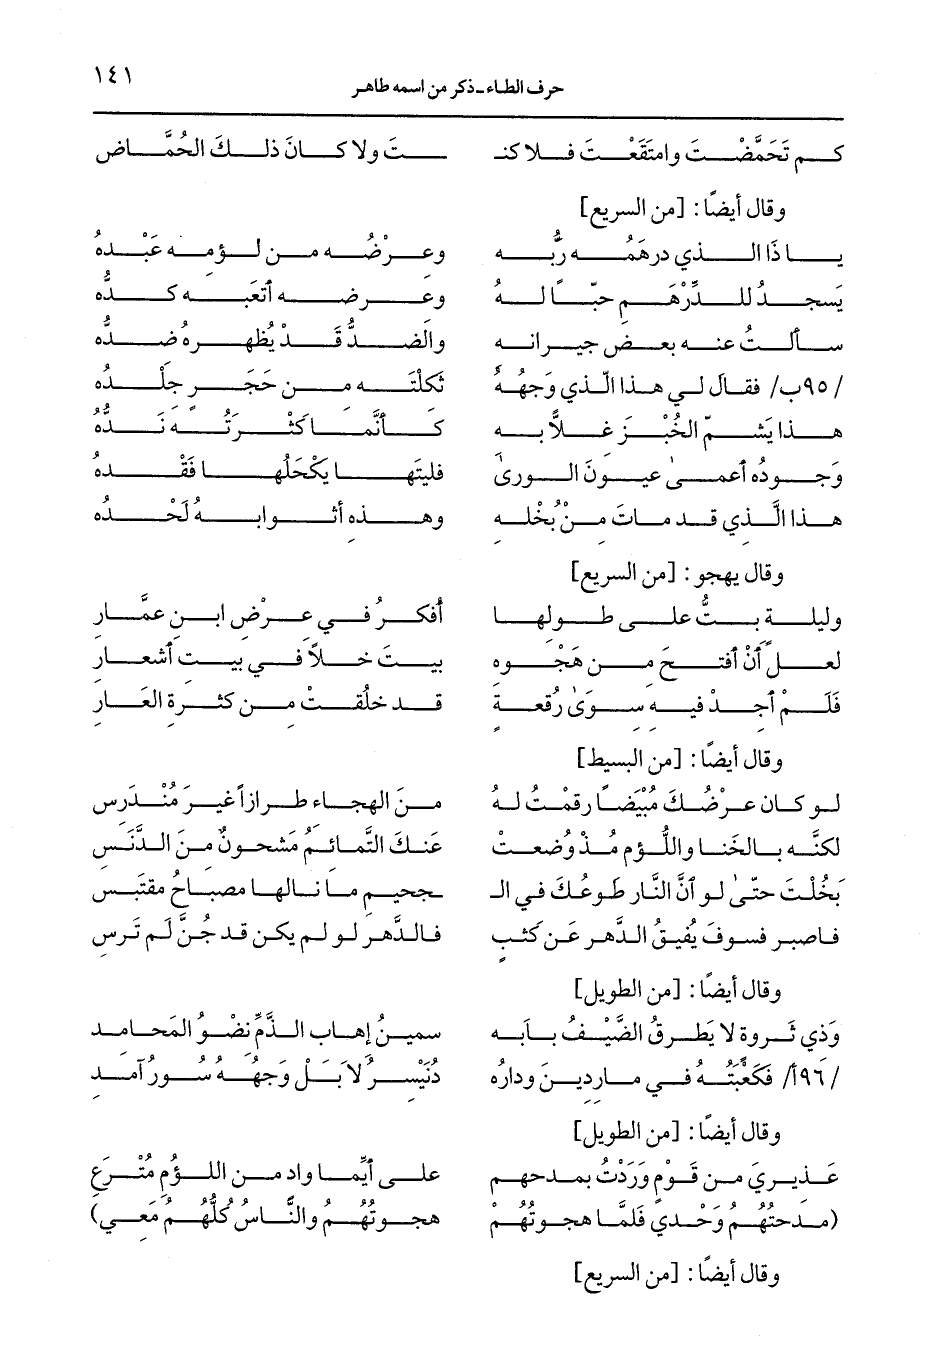 حرف الطاء ـ ذكر من اسمه طاهر ١٤١
كم تَحَمَّضْتَ وامتقَعْتَ فلا كنـ ـتَ ولا كانَ ذلكَ الحُمَّاض
وقال أيضًا: [من السريع]
يا ذَا الذي درهمُه رَبُّه وعِرْضُه من لؤمه عَبْدُهُ
يَسجدُ للدِّرْهَمِ حبًّا لهُ وعِرضه أتعَبَه كدُّه
سألتُ عنه بعضَ جيرانه والضدُّ قد يُظهِرهُ ضدُّه
/٩٥ب/ فقالَ لي هذا الّذي وَجهُهُ ثكلتَه من حَجَرٍ جلْدُه
هذا يَشمّ الخُبْزَ غلاًّ به كأنَّما كثْرَتُه نَدُّهُ
وَجودُه أعمى عيونَ الورىٰ فليتَها يكْحَلُها فَقْدهُ
هذا الَّذي قد ماتَ منْ بُخلِه وهذه أثوابهُ لَحْدُه
وقال يهجو: [من السريع]
وليلة بتُّ على طولها أفكرُ في عِرْضِ ابن عمَّارِ
لعلِّ أَنْ أفتحَ من هَجْوِه بيتَ خلاً في بيت أشعارِ
فَلَمْ أجدْ فيه سوَىٰ رُقعةٍ قد خلُقتْ من كثرةِ العَارِ
وقال أيضًا: [من البسيط]
لو كان عرْضُكَ مُبْيَضًّا رقمْتُ لهُ منَ الهجاء طرازاً غيرَ مُنْدَرسِ
لكنَّه بالخَنا واللُّؤمِ مُذْ وُضعتْ عَنكَ التَّمائمُ مَشحونٌ منَ الدَّنَسِ
بَخُلتَ حتّىٰ لو أنَّ النَّار طوعُكَ في الـ ـجحيمِ ما نالها مصباحُ مقتبسِ
فاصبر فسوفَ يُفيقُ الدَّهر عَن كثبٍ فالدَّهر لو لم يكن قد جُنَّ لَم تَرسِ
وقال أيضًا: [من الطويل]
وَذي ثروة لا يَطرقُ الضَّيفُ بابَه سمينُ إهابِ الذَّمِّ نضْوُ المَحامدِ
/٩٦أ/ فكَعْبَتُه في ماردينَ ودارُه دُنَيْسرُ لاَ بَلْ وَجهُه سُورُ آمدِ
وقال أيضًا: [من الطويل]
عَذيري من قَومٍ وَرَدْتُ بمدحهمْ على أيِّما وادٍ من اللؤْمِ مُتْرَعِ
(مدحتُهُم وَحْدي فلمَّا هجوتُهُمْ هجوتُهُم والنَّاسُ كلُّهُمُ مَعي)
وقال أيضًا: [من السريع]